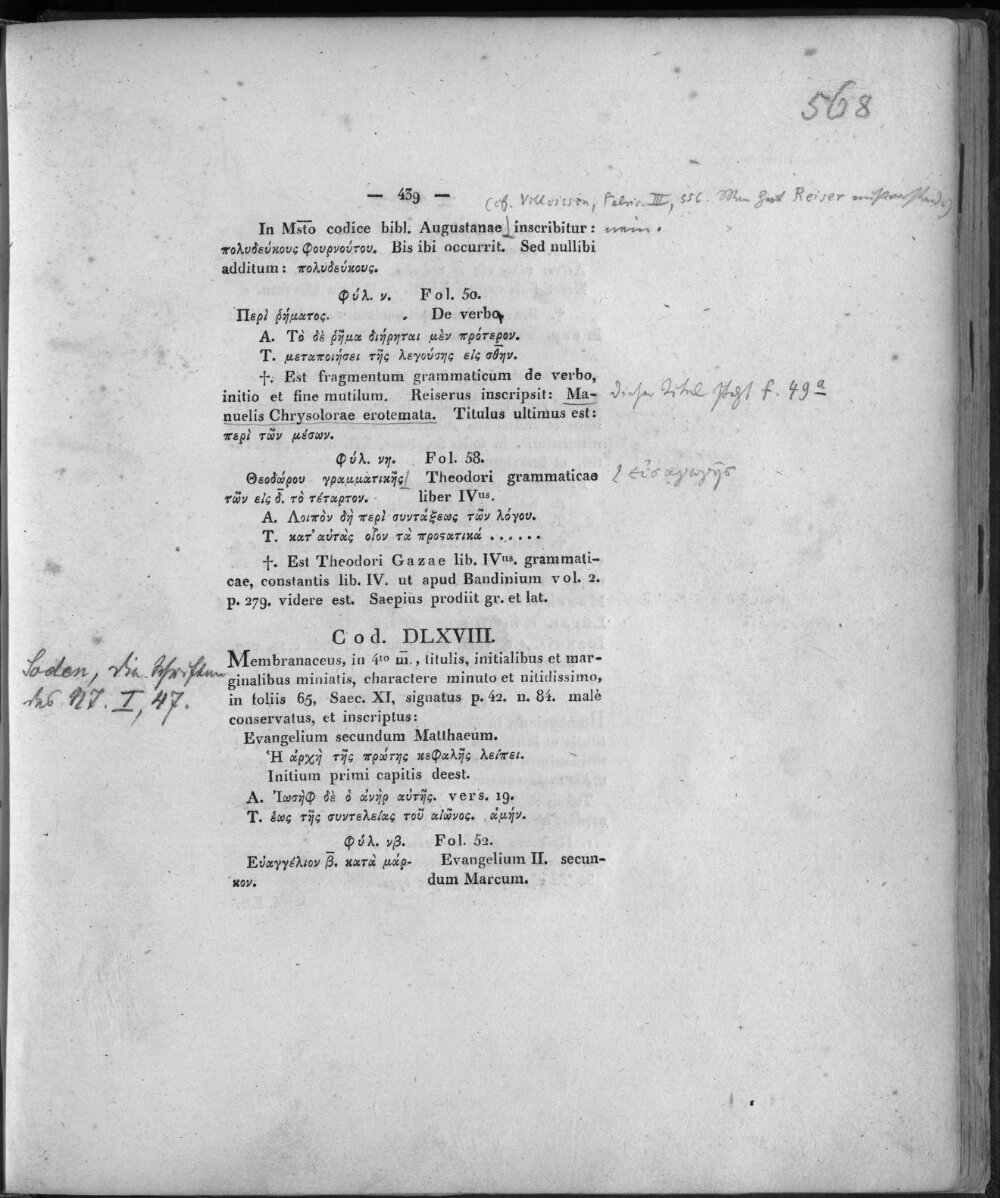 568
— 439 —
(cf. Villoison, Fabric. III, 556. Man hat Reiser missverstanden)
In Msto codice bibl. Augustanae inscribitur: nein.
πολυδεύκους φουρνούτου. Bis ibi occurrit. Sed nullibi
additum: πολυδεύκους.
Φύλ. ν. Fol. 50.
Περὶ ῥήματος. De verbo,
Α. Τὸ δὲ ῥῆμα διῄρηται μὲν πρότερον.
Τ. μεταποιήσει τῆς λεγούσης εἰς σθην.
†. Est fragmentum grammaticum de verbo,
initio et fine mutilum. Reiserus inscripsit: Ma- dieser Titel steht f. 49a
nuelis Chrysolorae erotemata. Titulus ultimus est:
περὶ τῶν μέσων.
Φύλ. νη. Fol. 58.
Θεοδώρου γραμματικῆς Theodori grammaticae εἰσαγωγῆς
τῶν εἰς δ̅. τὸ τέταρτον. liber IVus.
Α. Λοιπὸν δὴ περὶ συντάξεως τῶν λόγου.
Τ. κατ' αὐτὰς οἷον τὰ προστατικά ......
†. Est Theodori Gazae lib. IVus. grammati-
cae, constantis lib. IV. ut apud Bandinium vol. 2.
p. 279. videre est. Saepius prodiit gr. et lat.
Cod. DLXVIII.
Soden, die Schriften
des NT. I, 47.
Membranaceus, in 4to m̅., titulis, initialibus et mar-
ginalibus miniatis, charactere minuto et nitidissimo,
in foliis 65, Saec. XI, signatus p. 42. n. 84. malè
conservatus, et inscriptus:
Evangelium secundum Matthaeum.
Ἡ ἀρχὴ τῆς πρώτης κεφαλῆς λείπει.
Initium primi capitis deest.
Α. Ἰωσὴφ δὲ ὁ ἀνὴρ αὐτῆς. vers. 19.
Τ. ἕως τῆς συντελείας τοῦ αἰῶνος. ἀμήν.
Φύλ. νβ. Fol. 52.
Εὐαγγέλιον β̅. κατὰ μάρ- Evangelium II. secun-
κον. dum Marcum.